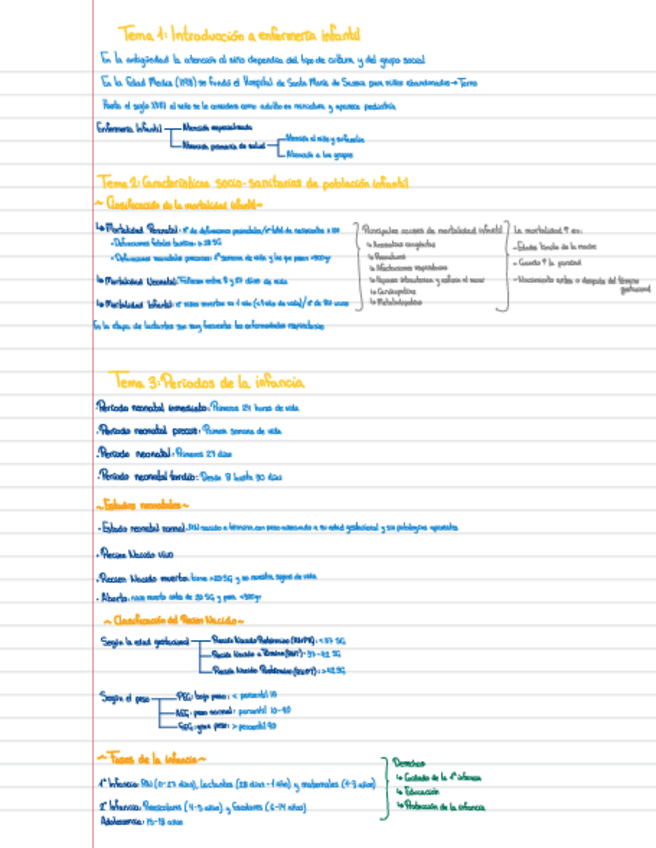 Tema 1: Introducción a enfermería infantil
En la antigüedad la atención al niño dependía del tipo de cultura y del grupo social
En la Edad Media (1198) se fundó el Hospital de Santa María de Sassia para niños abandonados → Torno
Hasta el siglo XVIII al niño se le considera como adulto en miniatura y aparece pediatría
Enfermería Infantil
Atención especializada
Atención primaria de salud
Atención al niño y su familia
Atención a los grupos
Tema 2: Características socio-sanitarias de población infantil
~ Clasificación de la mortalidad infantil ~
↳ Mortalidad Perinatal: nº de defunciones perinatales/nº total de nacimientos x 100
- Defunciones fetales tardías: > 28 SG
- Defunciones neonatales precoces: 1ª semana de vida
↳ Mortalidad Neonatal: Fallecen entre
días de vida
↳ Mortalidad Infantil: nº niños muertos en 1 año (<1 año de vida)/nº de
En la etapa de lactantes son muy frecuentes las enfermedades respiratorias
Principales causas de mortalidad infantil
↳ Anomalías congénitas
↳ Prematuro
↳ Afectaciones respiratorias
↳ Hipoxia intrauterina y asfixia al nacer
↳ Cardiopatías
↳ Metabolopatías
La mortalidad ↑ en:
- Edades límite de la madre
- Cuando ↑ la paridad
- Nacimiento antes o después del término gestacional
Tema 3: Períodos de la infancia
· Período neonatal inmediato: Primeras 24 horas de vida
· Período neonatal precoz: Primera semana de vida
· Período neonatal: Primeros 27 días
· Período neonatal tardío: Desde 8 hasta 30 días
~ Estados neonatales ~
· Estado neonatal normal: RN nacido a término, con peso adecuado a su edad gestacional y sin patologías aparentes
· Recién Nacido vivo
· Recién Nacido muerto: tiene >20 SG y no muestra signos de vida
· Aborto: nace muerto antes de 20 SG y pesa <500gr
~ Clasificación del Recién Nacido ~
Según la edad gestacional
Recién Nacido Pretérmino (RNPT): <37 SG
Recién Nacido a Término (RNT): 37-42 SG
Recién Nacido Postérmino (RNPT): >42 SG
Según el peso
PEG: bajo peso: < percentil 10
AEG: peso normal: percentil 10-90
GEG: gran peso: > percentil 90
~ Fases de la infancia ~
1ª Infancia: RN (0-27 días), Lactantes (28 días - 1 año) y maternales (1-3 años)
2ª Infancia: Preescolares (4-5 años) y Escolares (6-14 años)
Adolescencia: 15-18 años
Derechos
↳ Cuidado de la 1ª infancia
↳ Educación
↳ Protección de la infancia